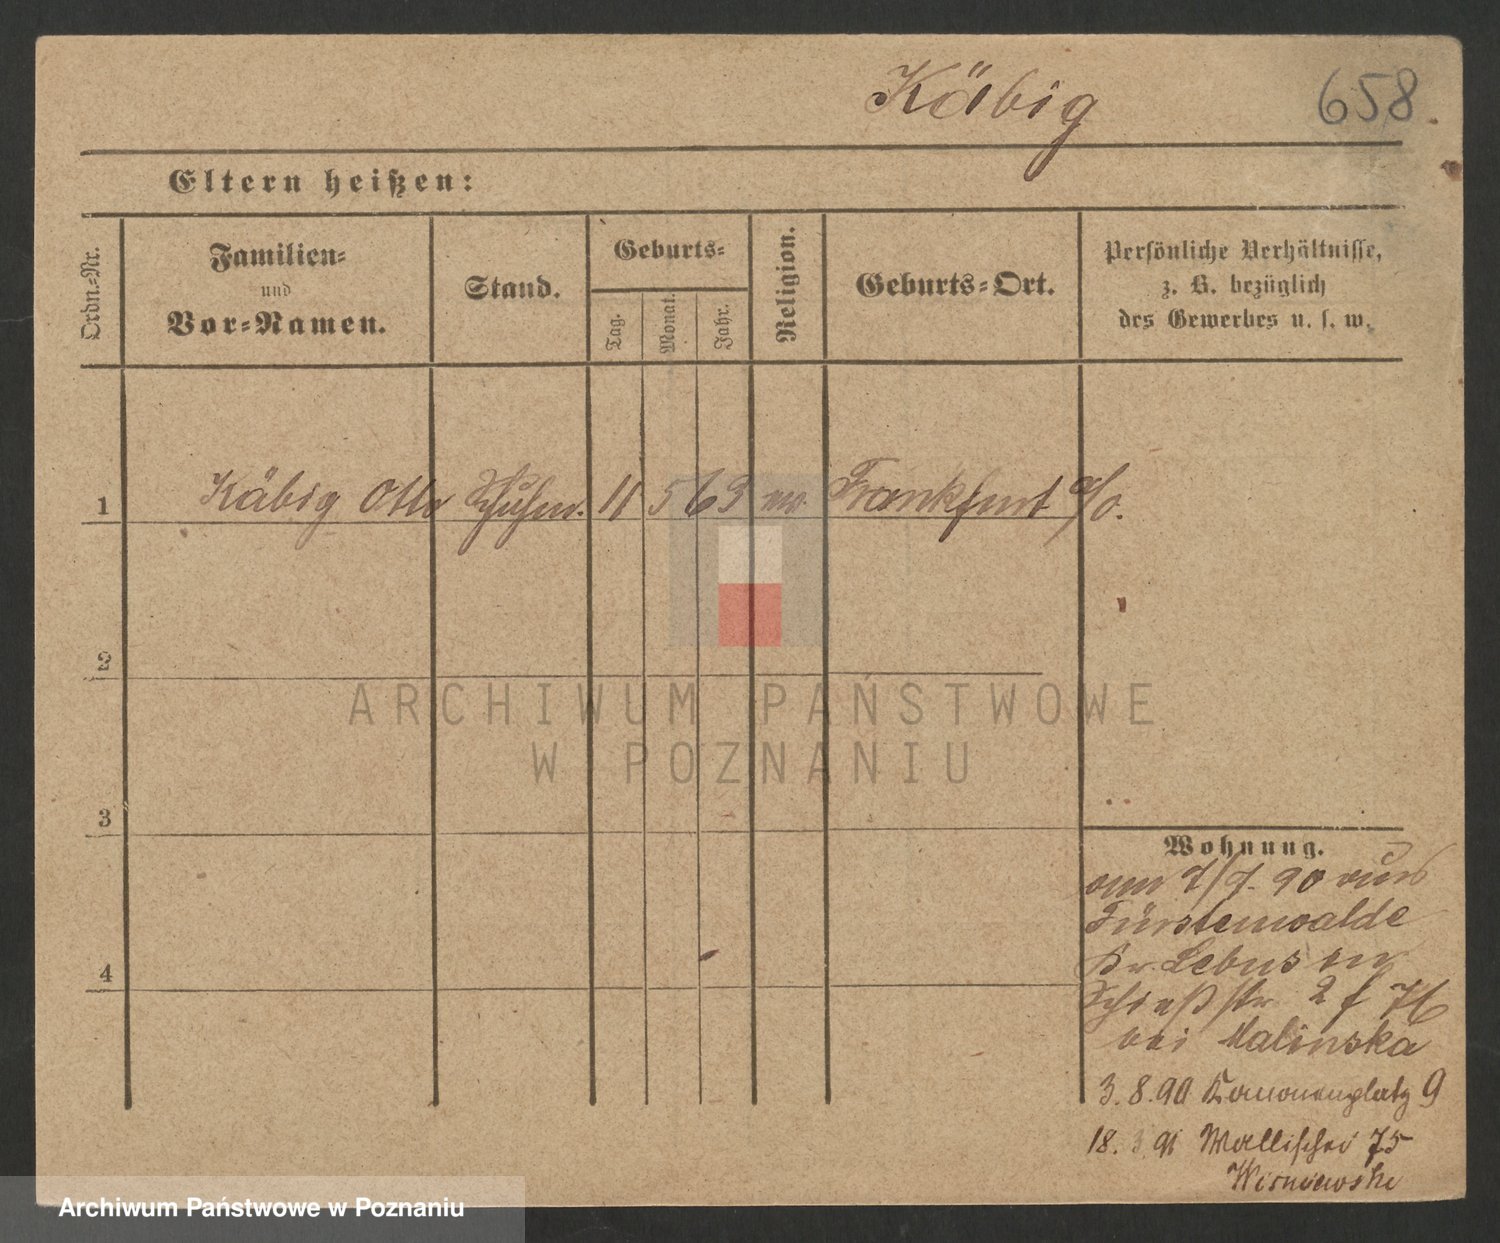 Käbig
658.
Eltern heißen:
Ordn.-Nr.
Familien-
und
Vor-Namen.
Stand.
Geburts-
Tag.
Monat.
Jahr.
Religion.
Geburts-Ort.
Persönliche Verhältnisse,
z. B. bezüglich
des Gewerbes u. s. w.
1 Käbig Otto Schuhm. 11 5 63 ev. Frankfurt a/O.
2
3
4
Wohnung.
am 7/7. 90 aus
Fürstenwalde
Kr. Lebus
Schießstr 2
bei Malinska
3.8.90 Kanonenplatz 9
18. 3 91 Wallischei 75
Wisniewski
ARCHIWUM PAŃSTWOWE
W POZNANIU
Archiwum Państwowe w Poznaniu